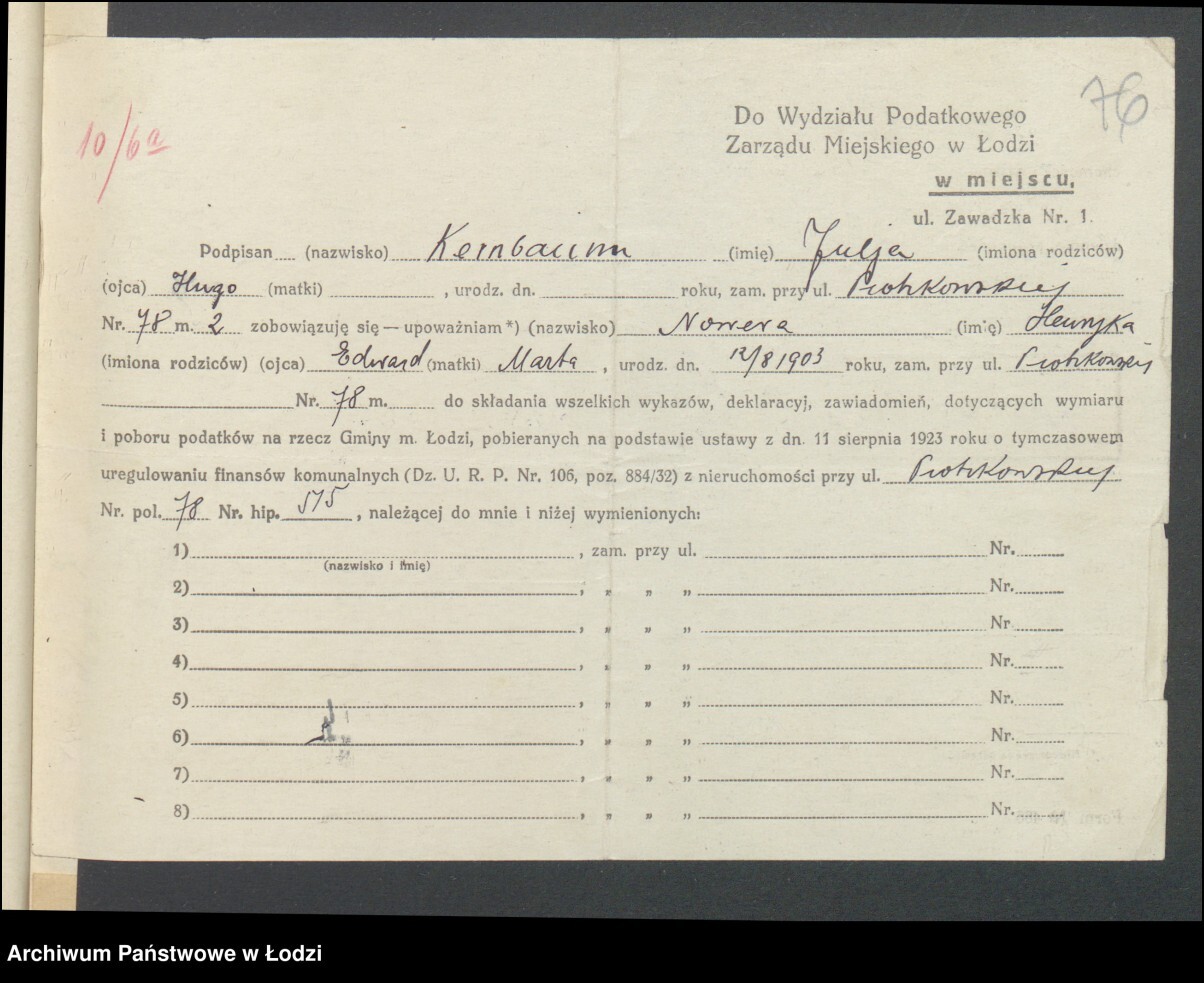 76
10/6a
Do Wydziału Podatkowego
Zarządu Miejskiego w Łodzi
w miejscu,
ul. Zawadzka Nr. 1.
Podpisan (nazwisko) Kernbaum (imię) Julja (imiona rodziców)
(ojca) Hugo (matki) , urodz. dn. roku, zam. przy ul. Piotrkowskiej
Nr. 78 m. 2 zobowiązuję się — upoważniam *) (nazwisko) (imię) Henryka
(imiona rodziców) (ojca) Edward (matki) Marta , urodz. dn. 12/8 1903 roku, zam. przy ul. Piotrkowskiej
Nr. 78 m. do składania wszelkich wykazów, deklaracyj, zawiadomień, dotyczących wymiaru
i poboru podatków na rzecz Gminy m. Łodzi, pobieranych na podstawie ustawy z dn. 11 sierpnia 1923 roku o tymczasowem
uregulowaniu finansów komunalnych (Dz. U. R. P. Nr. 106, poz. 884/32) z nieruchomości przy ul. Piotrkowskiej
Nr. pol. 78 Nr. hip. 515 , należącej do mnie i niżej wymienionych:
1) , zam. przy ul. Nr.
(nazwisko i imię)
2) , „ „ „ Nr.
3) , „ „ „ Nr
4) , „ „ „ Nr.
5) , „ „ „ Nr.
6) , „ „ „ Nr.
7) , „ „ „ Nr.
8) , „ „ „ Nr.
Archiwum Państwowe w Łodzi